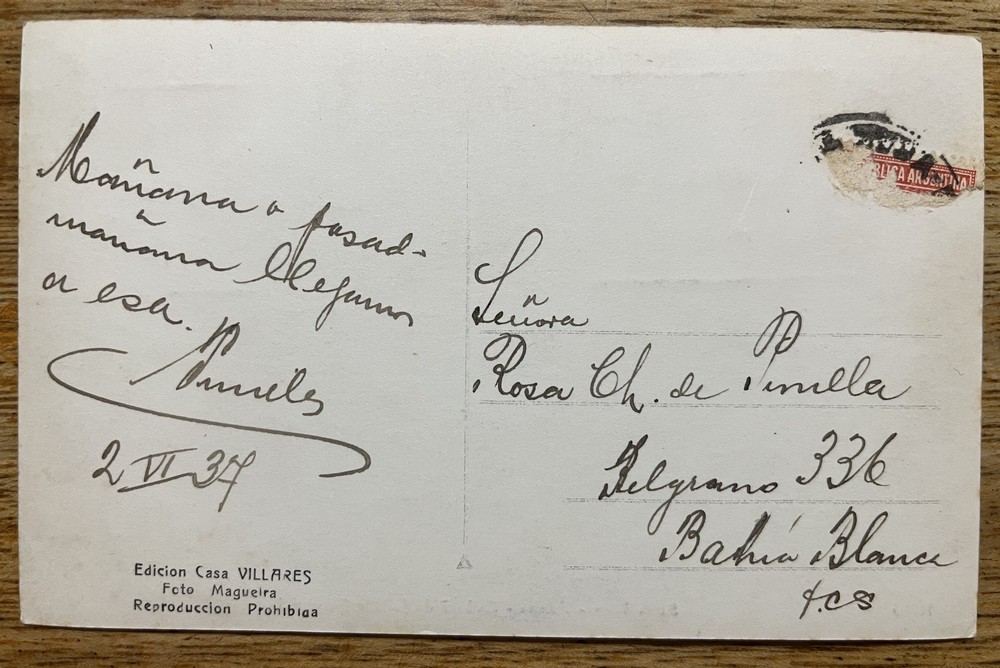 Mañana o pasad-
mañana llegamos
a esa.
Pinilla
2 VI 37
Edicion Casa VILLARES
Foto Magueira
Reproduccion Prohibida
BLICA ARGENTINA
Señora
Rosa Ch. de Pinilla
Belgrano 336
Bahía Blanca
f.c.s